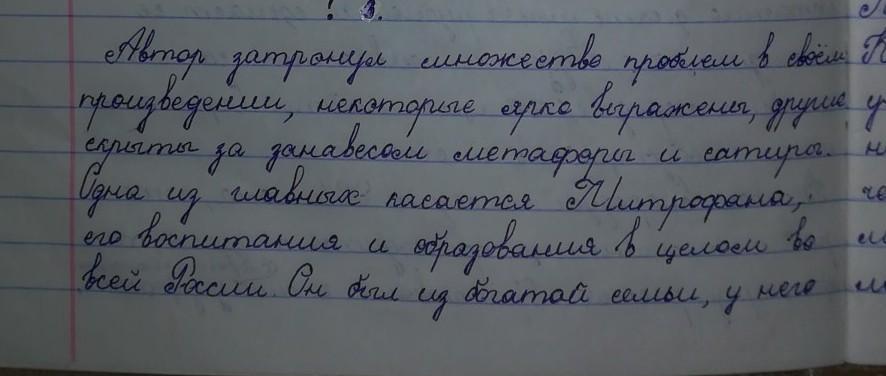 ! 3.
Автор затронул множество проблем в своём
произведении, некоторые ярко выражены, другие
скрыты за занавесом метафоры и сатиры.
Одна из главных касается Митрофана,
его воспитания и образования в целом во
всей России. Он был из богатой семьи, у него